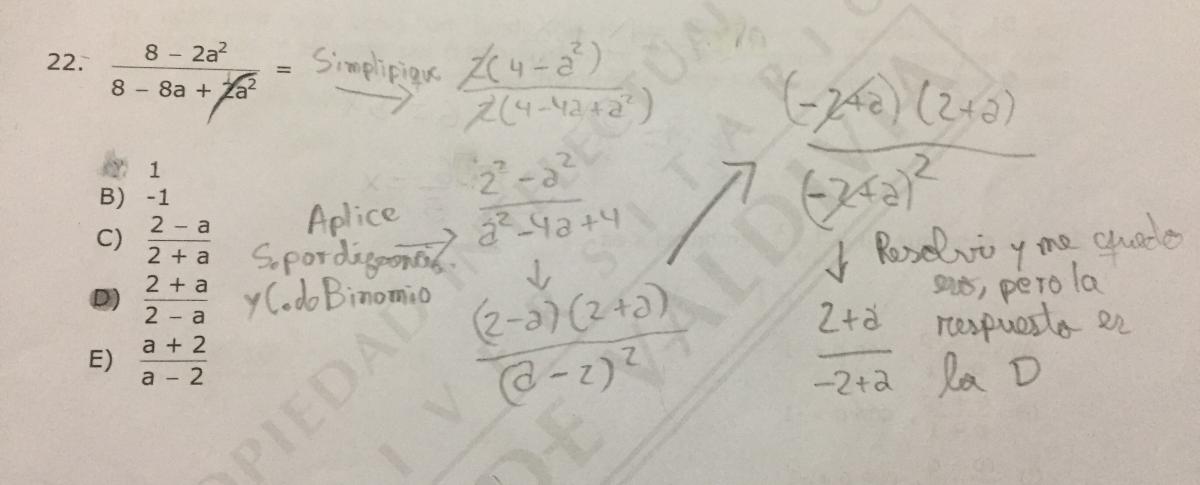 22. (8 − 2a²)/(8 − 8a + 2a²) =
Simplifique
2(4 − a²)/2(4 − 4a + a²)
1
B) -1
C) (2 − a)/(2 + a)
D) (2 + a)/(2 − a)
E) (a + 2)/(a − 2)
Aplice
S. por
y C. do Binomio
(2² − a²)/(a² − 4a + 4)
(2 − a)(2 + a)/(a − 2)²
(−2+a)(2+a)/(−2+a)²
Resolvi y me quedo
eso, pero la
respuesta es
la D
(2+a)/(−2+a)
PIEDAD INTELECTUAL
DE VALDIVIA